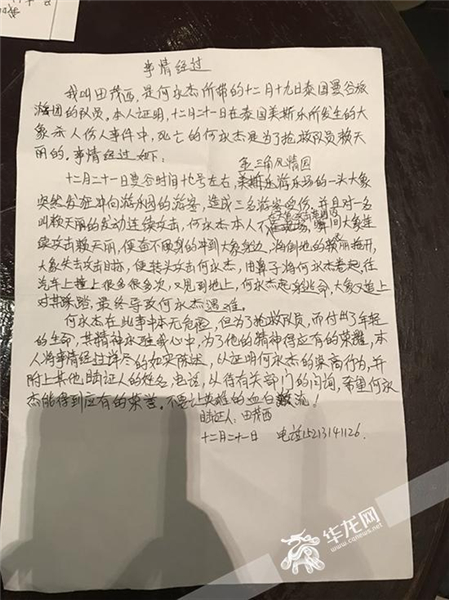 事情经过
我叫田茂西,是何永杰所带的十二月十九日泰国曼谷旅
游团的队员。本人证明,十二月二十一日在泰国美斯乐所发生的大
象杀人伤人事件中,死亡的何永杰是为了抢救队员赖天
丽的。事情经过如下:
金三角风情园
十二月二十一日曼谷时间 左右,美斯乐游乐场的一头大象
突然发狂冲向游乐园的游客,造成三名游客受伤,并且对一名
叫赖天丽的发动连续攻击,何永杰本人不在现场,瞬间大象连
续攻击赖天丽,便奋不顾身的冲到大象身边,将倒地的赖天丽拖开,
大象失去攻击目标,便转头攻击何永杰,用鼻子将何永杰卷起,往
汽车上撞上很多很多次,又甩到地上,何永杰起来逃命,大象又追上
对其踩踏,最终导致何永杰遇难。
何永杰在此事中本无危险,但为了抢救队员,而付出了年轻
的生命,其精神永驻我心中,为了他的精神得应有的荣耀,本
人将事情经过详尽的如实陈述,以证明何永杰的崇高行为,并
附上其他目证人的姓名,电话,以待有关部门的问询,希望何永
杰能得到应有的荣誉。不要让英雄的血白流!
证人:田茂西
十二月二十一日 电话15213141126.
华龙网
www.cqnews.net